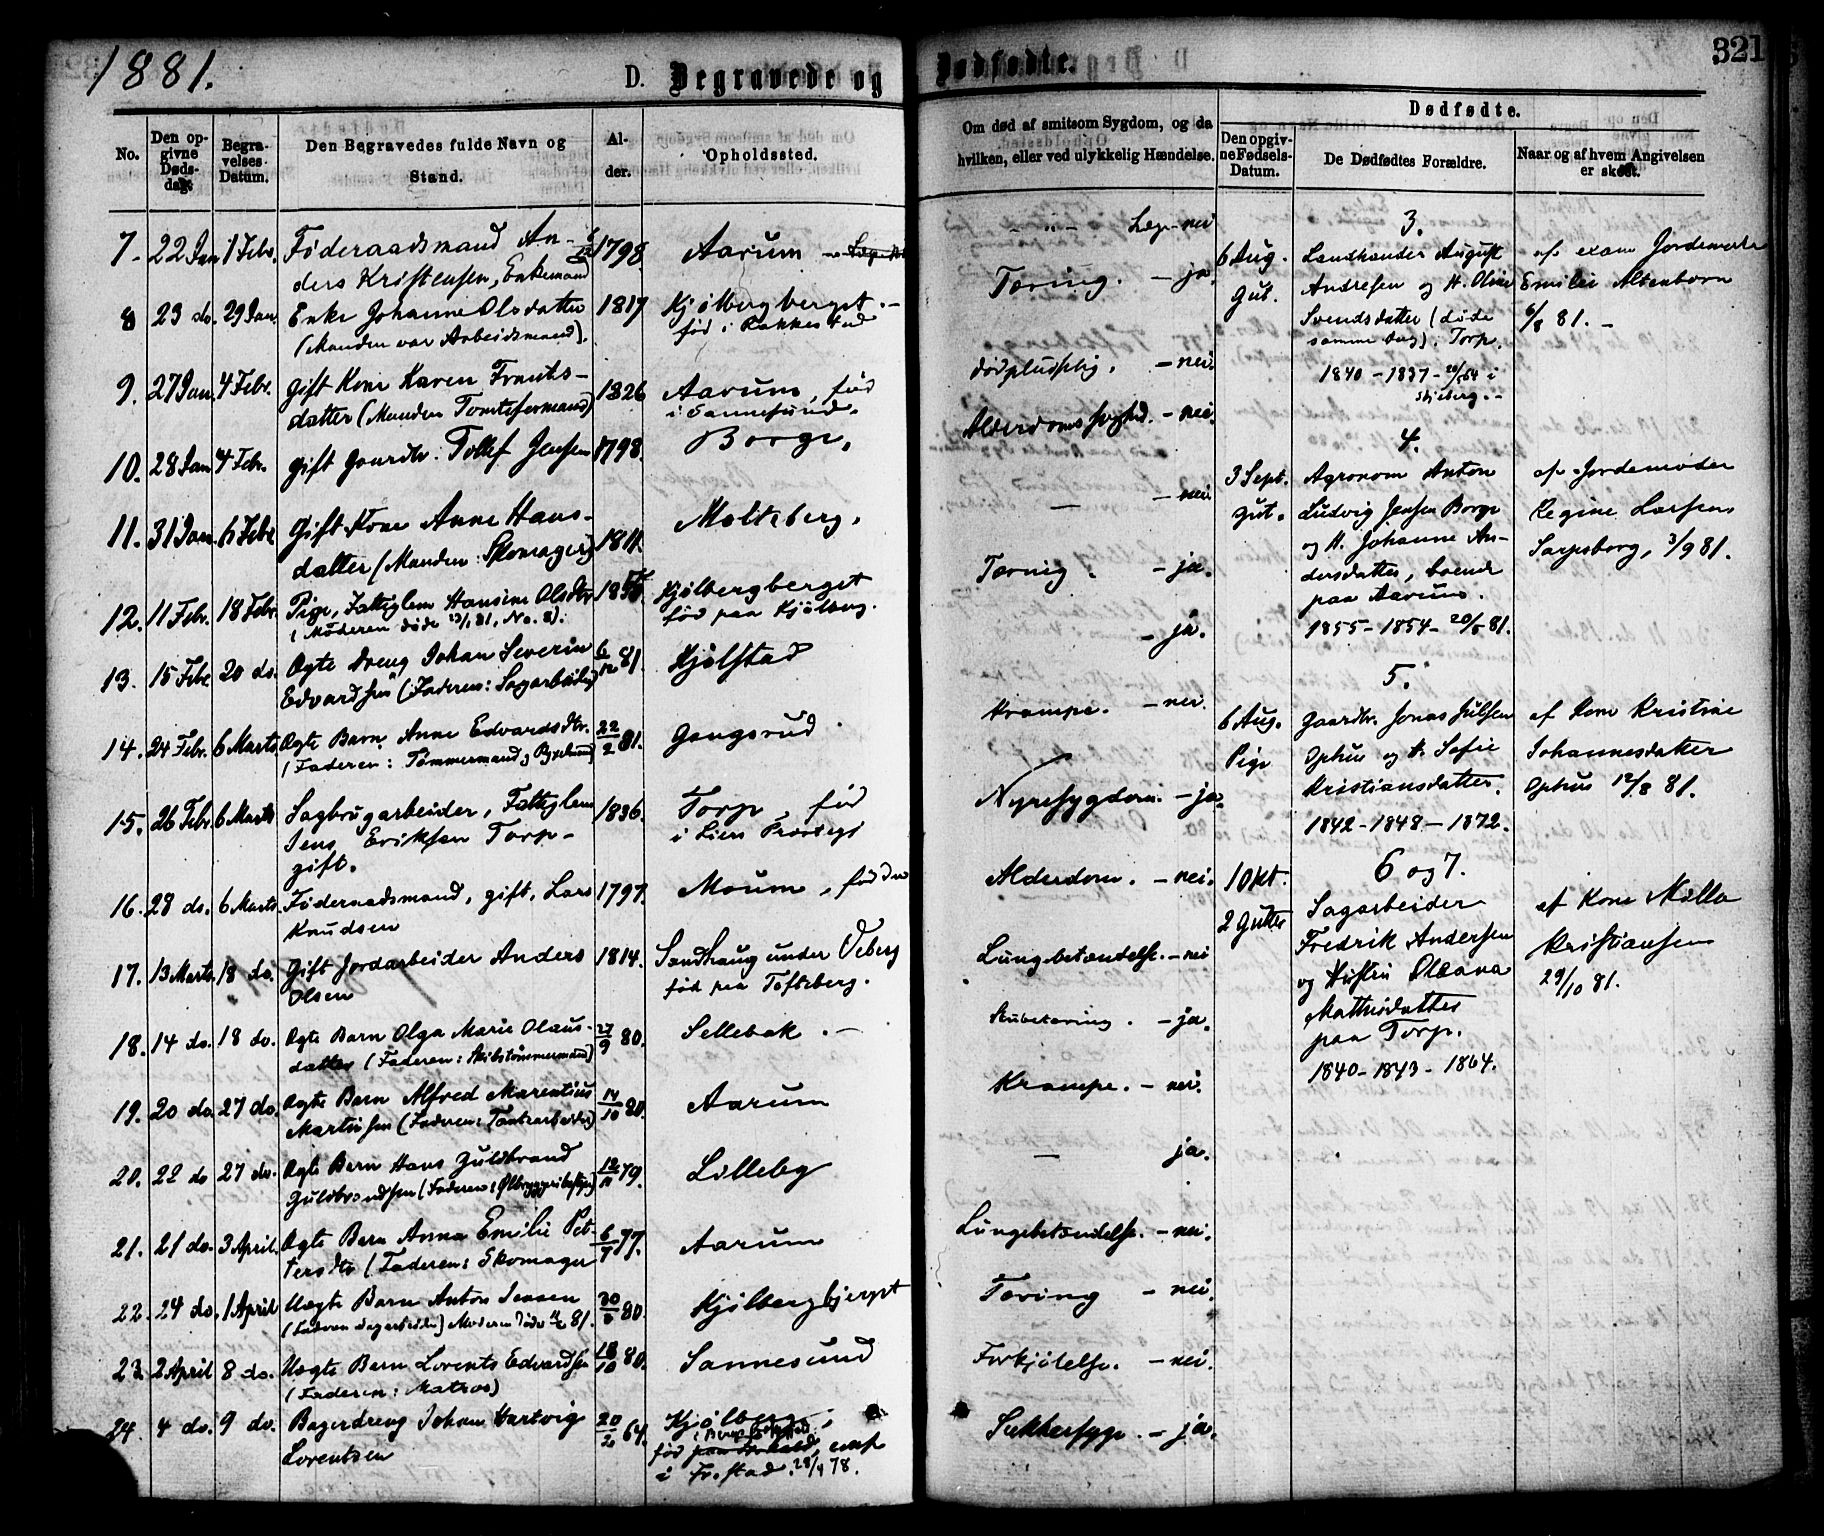 1881.
D. Begravede og Dødfødte.
321
No.
Den opgivne Dødsdag.
Begravelses-Datum.
Den Begravedes fulde Navn og Stand.
Alder.
Opholdssted.
Om død af smitsom Sygdom, og da hvilken, eller ved ulykkelig Hændelse.
Dødfødte.
Den opgivne Fødsels-Datum.
De Dødfødtes Forældre.
Naar og af hvem Angivelsen er skeet.
7. 22 Jan 1 Febr. Føderaadsmand An- 1798. Aarum
ders Kristensen, Enkemand
8 23 do. 29 Jan. Enke Johanne Olsdatter 1817 Kjølbergberget.
(Manden var Arbeidsmand). født i Rakkestad
Tæring. - ja.
9. 27 Jan. 4 Febr. gift Kone Karen 1826 Aarum, fød
datter (Manden Tomtefermand) i Sannesund.
dødpludslig. - nei.
10. 28 Jan 4 Febr. gift Gaardbr. Tollef Jensen 1798. Borge.
Alderdomssvaghed. - nei.
11. 31 Jan 6 Febr gift Kone Anne Hans- 1811. Molteberg.
datter (Manden: Skomager)
— - nei
12. 11 Febr. 18 Febr. Pige, Fattiglem Hansine Olsdtr Kjølbergberget
(Moderen døde 23/1 81, No. 8). fød paa Kjølberg.
Tæring. - ja.
13. 15 Febr. 20 do. Ægte Dreng Johan Severin 6/12 81. Kjølstad
Edvardsen (Faderen: Sagarbeider)
- ja.
14. 24 Febr. 6 Marts Ægte Barn Anne Edvardsdtr. 22/2 81. Gangsrud
(Faderen: Tømmermand,
Krampe. - nei.
15. 26 Febr 6 Marts Sagbrugarbeider, Fattiglem 1836. Torp, fød
Jens Eriksen Torp- i Liers Præstegj
gift.
Nyresygdom. - ja.
16. 28 do. 6 Marts Føderaadsmand, gift, Lars 1797. Moum, fød
Knudsen
Alderdom. - nei.
17. 13 Marts 18 do. gift Jordarbeider Anders 1814. Sandhaug under Veberg
Olsen fød paa Tofteberg.
Lungebetændelse. - nei
18. 14 do. 18 do. Ægte Barn Olga Marie Olaus- 27/9 80. Sellebak.
datter (Faderen: Skibstømmermand)
- ja.
19. 20 do. 27 do. Ægte Barn Alfred Marentius 14/10 80. Aarum
Martinsen (Faderen:
Krampe. - nei.
20. 22 do 27 do. Ægte Barn Hans Guldbrand 12/11 79. Lilleby
Guldbrandsen (Faderen:
— ja.
21. 21 do. 3 April. Ægte Barn Anna Emilie Pet- 6/7 77. Aarum
tersdtr (Faderen: Skomager
Lungebetændelse. - nei.
22. 24 do. 1 April Uægte Barn Anton Jensen 80. Kjølbergbjerget
(Faderen Sagarbeider) Moderen døde 81.
Tæring - nei.
23. 2 April 8 do. Uægte Barn Lorents Edvardsen 18/10 80. Sannesund
(Faderen: Matros)
Forkjølelse. - nei.
24. 4 do. 9 do. Bagerdreng Johan Hartvig 20/2 64. Kjølberg,
Lorentsen fød conf.
i Fr.stad. 28/4 78.
Sukkersyge. - ja.
3.
6 Aug. Landhandler August af exam Jordemoder
Gut. Andresen og H. Oline Emilie Altenborn
Svendsdatter (døde 6/8 81.
samme Dag), Torp.
1840 - 1837 - 20/5 64 i
Skjeberg.
4.
3 Sept. Agronom Anton af Jordemoder
Gut. Ludvig Jensen Borge Regine Larsen
og H. Johanne An- Sarpsborg, 3/9 81.
dersdatter, boende
paa Aarum.
1855 - 1854 - 20/5 81.
5.
6 Aug. Gaardbr. Jonas Julsen af Kone Kristine
Pige Ophus og H. Sofie Johannesdatter
Kristiansdatter. Ophus 12/8 81.
1842 - 1848 - 1872.
6 og 7.
1 Okt. Sagarbeider af Kone Milla
2 Gutter Fredrik Andersen Kristiansen
og Hustru Oleana 29/10 81.
Mathisdatter
paa Torp.
1840 - 1843 - 1864.